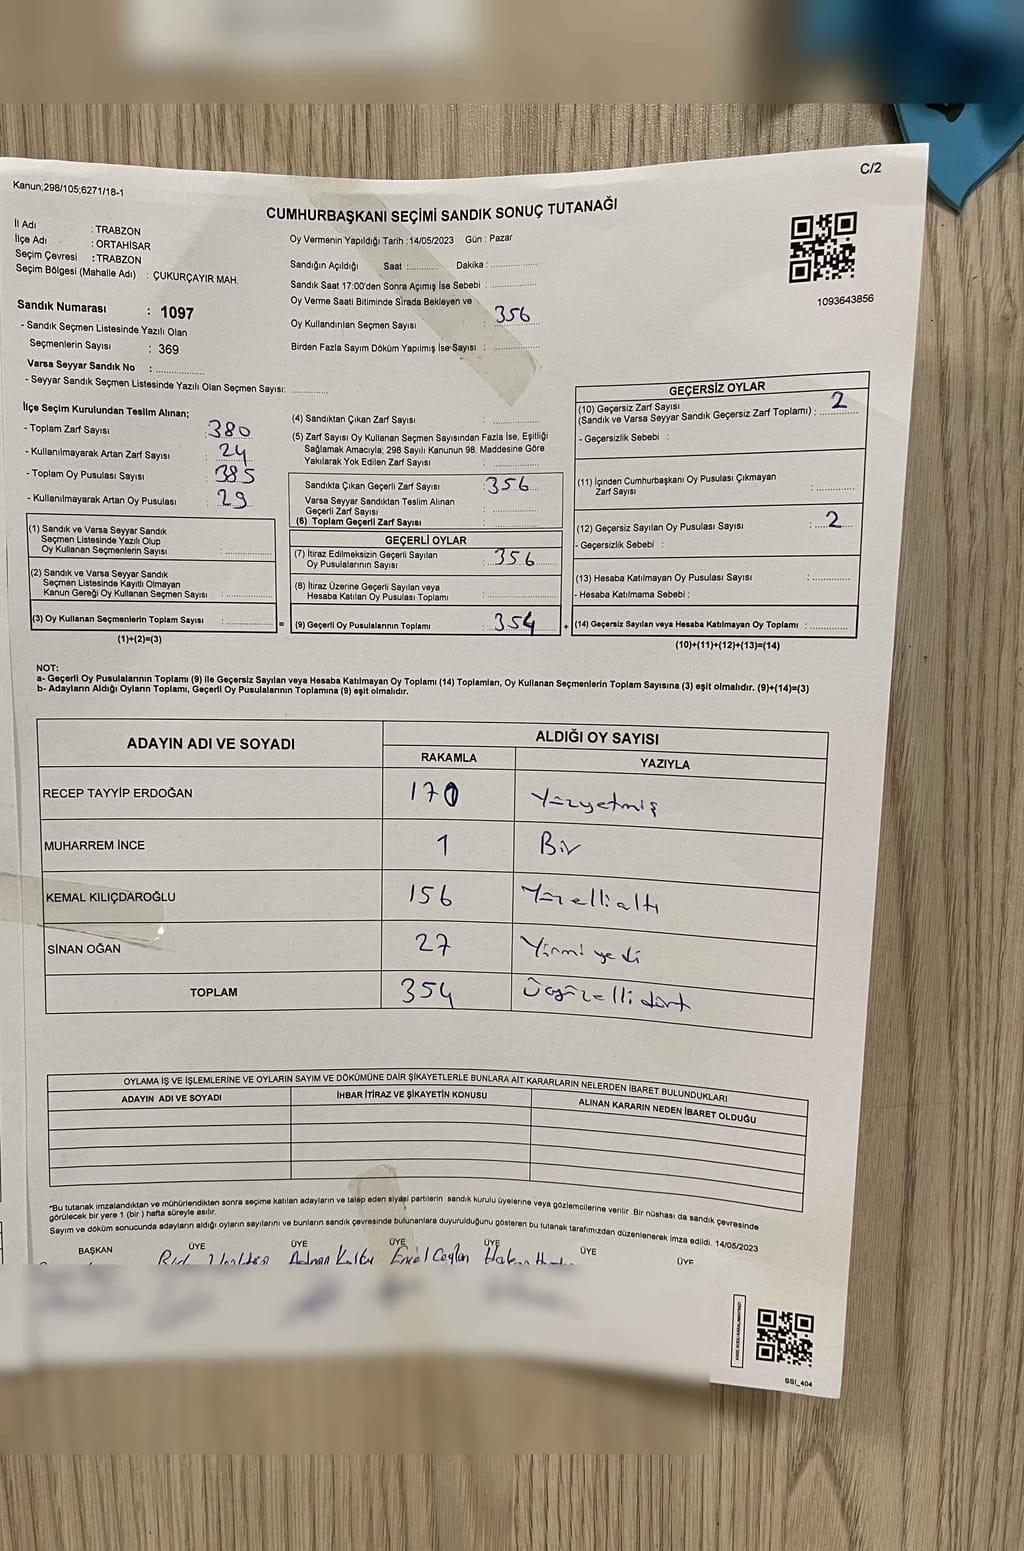 Kanun;298/105;6271/18-1
C/2
CUMHURBAŞKANI SEÇİMİ SANDIK SONUÇ TUTANAĞI
İl Adı : TRABZON
İlçe Adı : ORTAHİSAR
Seçim Çevresi : TRABZON
Seçim Bölgesi (Mahalle Adı) : ÇUKURÇAYIR MAH.
Sandık Numarası : 1097
- Sandık Seçmen Listesinde Yazılı Olan
Seçmenlerin Sayısı : 369
Varsa Seyyar Sandık No : ..............
- Seyyar Sandık Seçmen Listesinde Yazılı Olan Seçmen Sayısı: ............
Oy Vermenin Yapıldığı Tarih : 14/05/2023 Gün : Pazar
Sandığın Açıldığı Saat :........... Dakika : ..............
Sandık Saat 17:00'den Sonra Açımış İse Sebebi : ..............
Oy Verme Saati Bitiminde Sırada Bekleyen ve
Oy Kullandırılan Seçmen Sayısı : 356
Birden Fazla Sayım Döküm Yapılmış İse Sayısı : ..............
1093643856
İlçe Seçim Kurulundan Teslim Alınan;
- Toplam Zarf Sayısı : 380
- Kullanılmayarak Artan Zarf Sayısı : 24
- Toplam Oy Pusulası Sayısı : 385
- Kullanılmayarak Artan Oy Pusulası : 29
(1) Sandık ve Varsa Seyyar Sandık
Seçmen Listesinde Yazılı Olup
Oy Kullanan Seçmenlerin Sayısı : ..............
(2) Sandık ve Varsa Seyyar Sandık
Seçmen Listesinde Kayıtlı Olmayan
Kanun Gereği Oy Kullanan Seçmen Sayısı : ..............
(3) Oy Kullanan Seçmenlerin Toplam Sayısı : ..............
(1)+(2)=(3)
(4) Sandıktan Çıkan Zarf Sayısı : ..............
(5) Zarf Sayısı Oy Kullanan Seçmen Sayısından Fazla İse, Eşitliği
Sağlamak Amacıyla; 298 Sayılı Kanunun 98. Maddesine Göre
Yakılarak Yok Edilen Zarf Sayısı : ..............
Sandıkta Çıkan Geçerli Zarf Sayısı : 356
Varsa Seyyar Sandıktan Teslim Alınan
Geçerli Zarf Sayısı : ..............
(6) Toplam Geçerli Zarf Sayısı : ..............
GEÇERLİ OYLAR
(7) İtiraz Edilmeksizin Geçerli Sayılan
Oy Pusulalarının Sayısı : 356
(8) İtiraz Üzerine Geçerli Sayılan veya
Hesaba Katılan Oy Pusulası Toplamı : ..............
= (9) Geçerli Oy Pusulalarının Toplamı : 354 +
GEÇERSİZ OYLAR
(10) Geçersiz Zarf Sayısı
(Sandık ve Varsa Seyyar Sandık Geçersiz Zarf Toplamı) : 2
- Geçersizlik Sebebi :
(11) İçinden Cumhurbaşkanı Oy Pusulası Çıkmayan
Zarf Sayısı : ............
(12) Geçersiz Sayılan Oy Pusulası Sayısı : 2
- Geçersizlik Sebebi :
(13) Hesaba Katılmayan Oy Pusulası Sayısı : ............
- Hesaba Katılmama Sebebi :
(14) Geçersiz Sayılan veya Hesaba Katılmayan Oy Toplamı : ............
(10)+(11)+(12)+(13)=(14)
NOT:
a- Geçerli Oy Pusulasının Toplamı (9) ile Geçersiz Sayılan veya Hesaba Katılmayan Oy Toplamı (14) Toplamları, Oy Kullanan Seçmenlerin Toplam Sayısına (3) eşit olmalıdır. (9)+(14)=(3)
b- Adayların Aldığı Oyların Toplamı, Geçerli Oy Pusulalarının Toplamına (9) eşit olmalıdır.
ADAYIN ADI VE SOYADI ALDIĞI OY SAYISI
RAKAMLA YAZIYLA
RECEP TAYYİP ERDOĞAN 170 Yüzyetmiş
MUHARREM İNCE 1 Bir
KEMAL KILIÇDAROĞLU 156 Yüzellialtı
SİNAN OĞAN 27 Yirmi yedi
TOPLAM 354 Üçyüzellidört
OYLAMA İŞ VE İŞLEMLERİNE VE OYLARIN SAYIM VE DÖKÜMÜNE DAİR ŞİKAYETLERLE BUNLARA AİT KARARLARIN NELERDEN İBARET BULUNDUKLARI
ADAYIN ADI VE SOYADI İHBAR İTİRAZ VE ŞİKAYETİN KONUSU ALINAN KARARIN NEDEN İBARET OLDUĞU
*Bu tutanak imzalandıktan ve mühürlendikten sonra seçime katılan adayların ve talep eden siyasi partilerin sandık kurulu üyelerine veya gözlemcilerine verilir .Bir nüshası da sandık çevresinde
görülecek bir yere 1 (bir ) hafta süreyle asılır.
Sayım ve döküm sonucunda adayların aldığı oyların sayılarını ve bunların sandık çevresinde bulunanlara duyurulduğunu gösteren bu tutanak tarafımızdan düzenlenerek imza edildi. 14/05/2023
BAŞKAN ÜYE ÜYE ÜYE ÜYE ÜYE ÜYE
Adnan Erel Ceylan Hakan
SSI_404